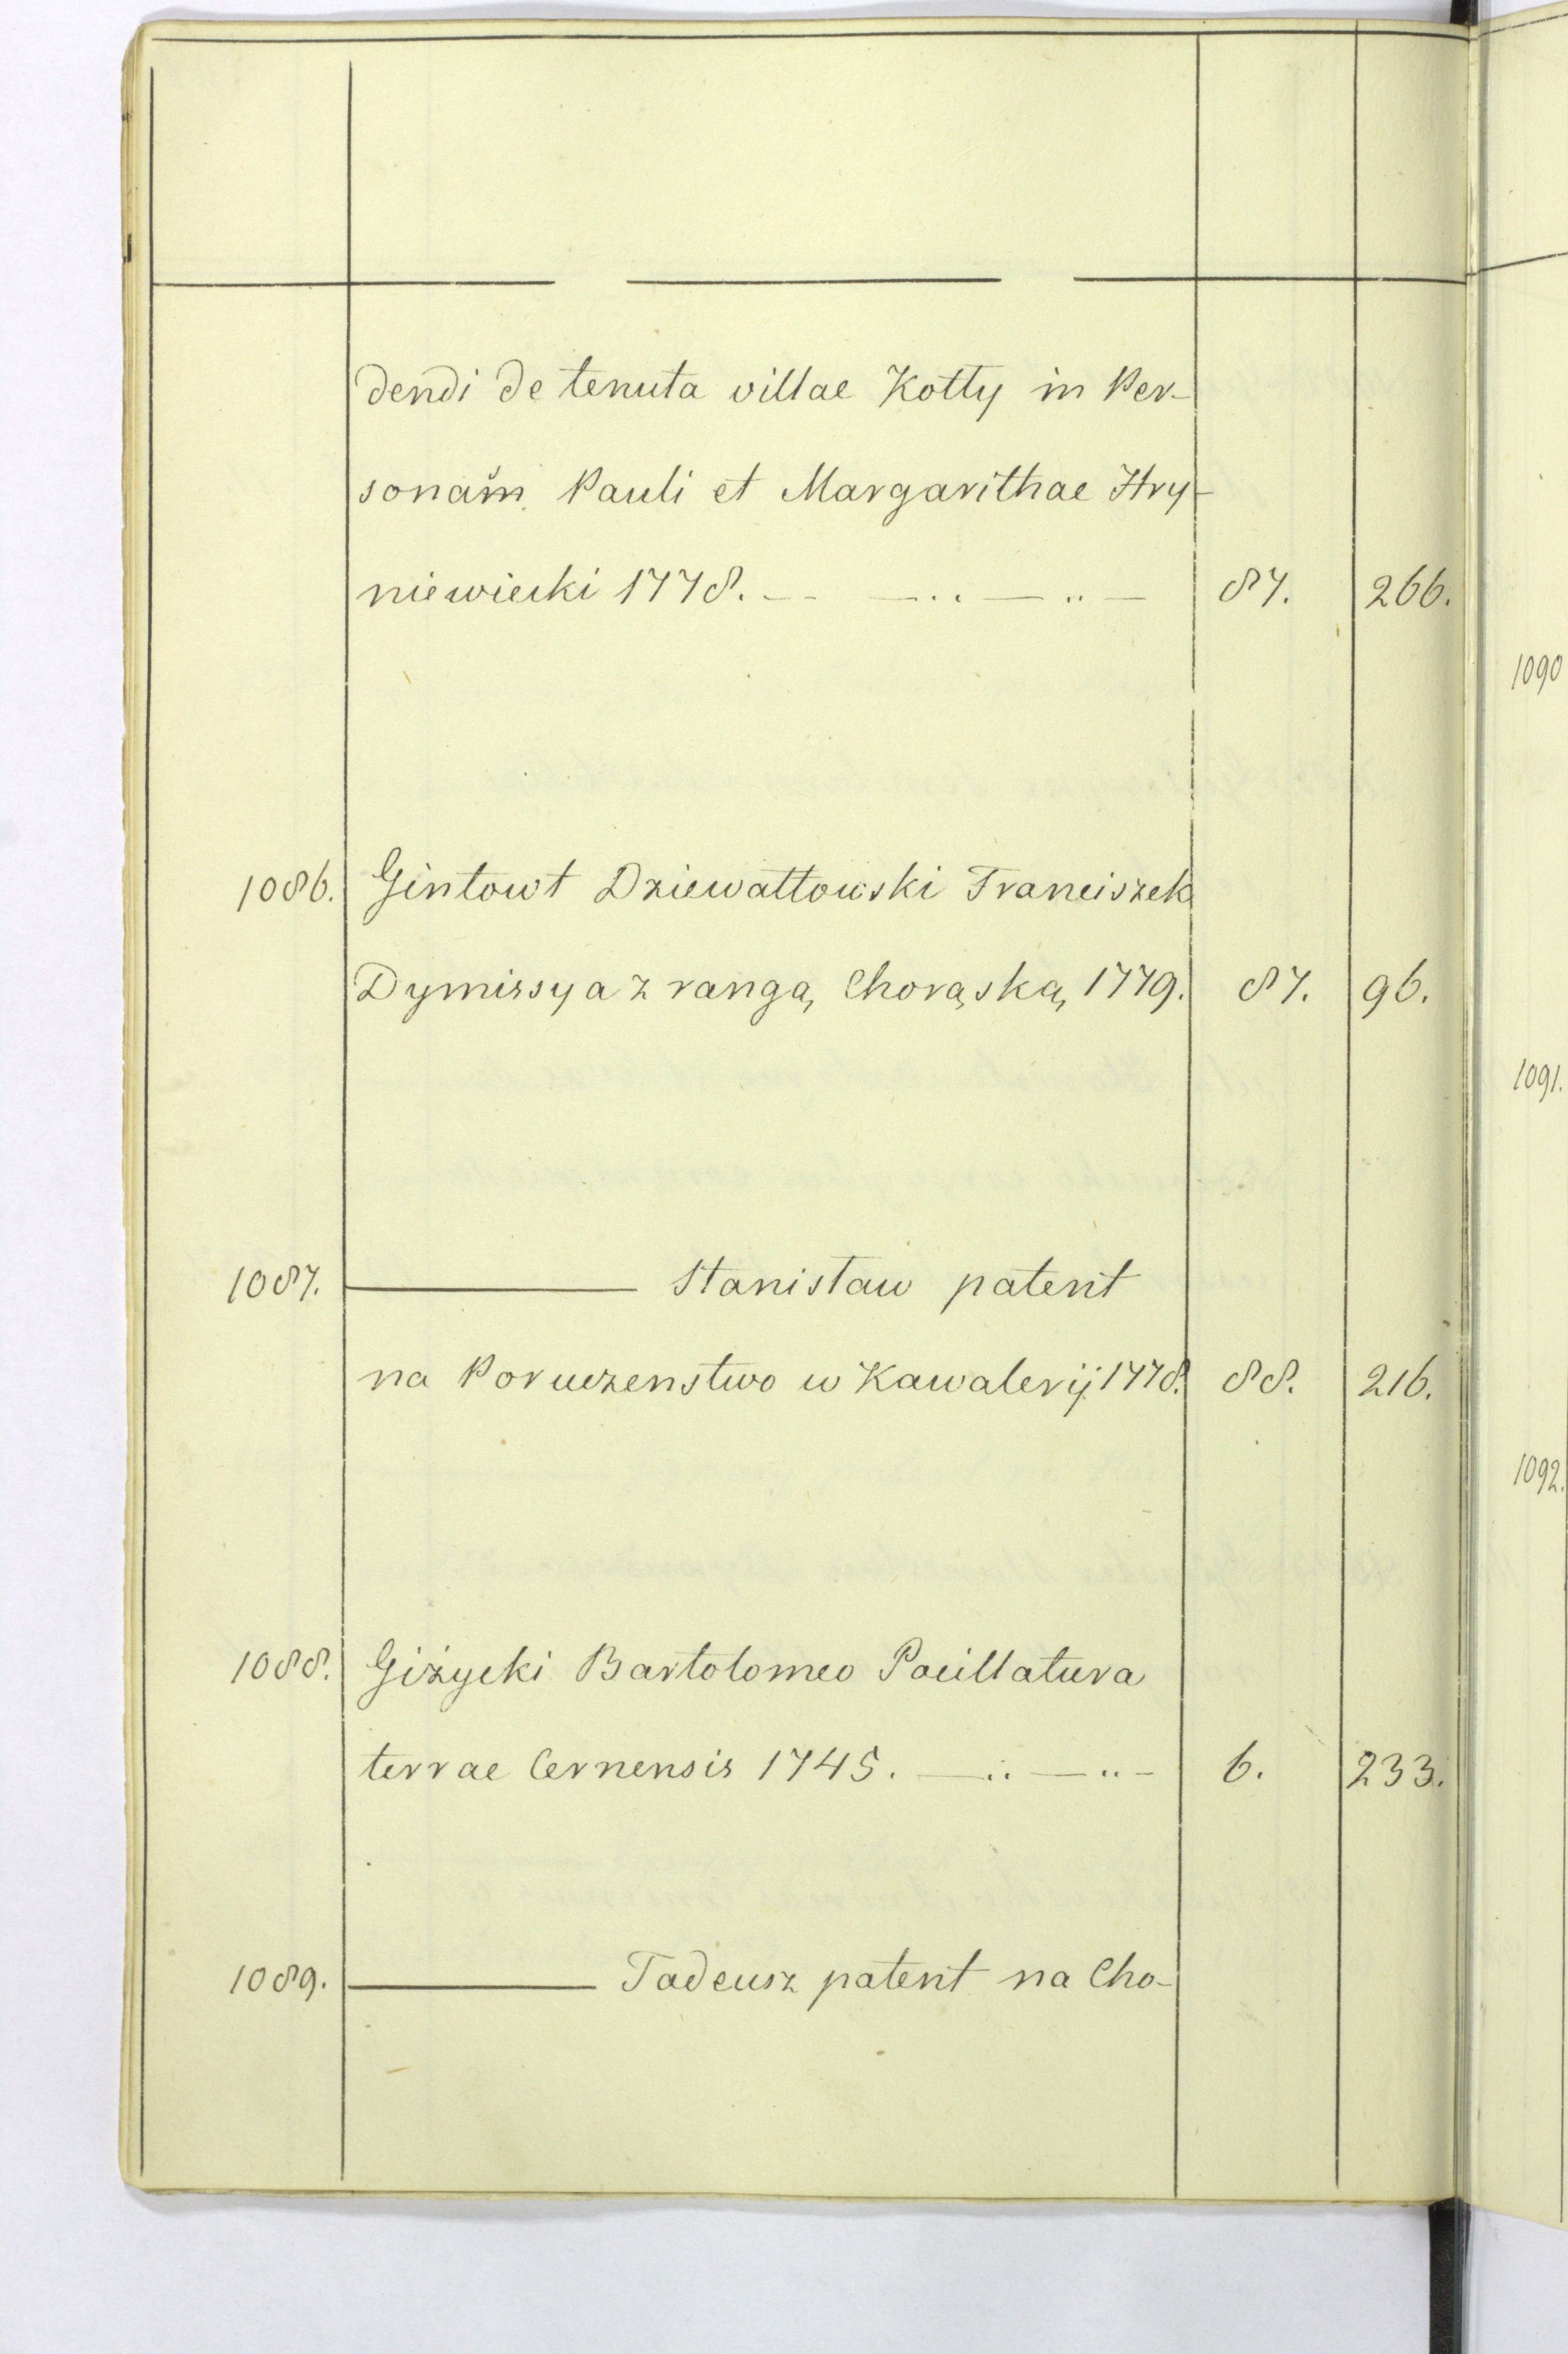 dendi de tenuta villae Kotły in Per-
sonam Pauli et Margarithae Hry-
niewiecki 1778. — — .. — .. — 87. 266.
1086. Gintowt Dziewałtowski Franciszek
Dymissya z rangą Chorąską 1779. 87. 96.
1087. ——— Stanisław patent
na Poruczenstwo w Kawalerij 1778. 88. 216.
1088. Giżycki Bartolomeo Pocillatura
terrae Cernensis 1745. — .. — .. — 6. 233.
1089. ——— Tadeusz patent na Cho-
1090
1091.
1092.